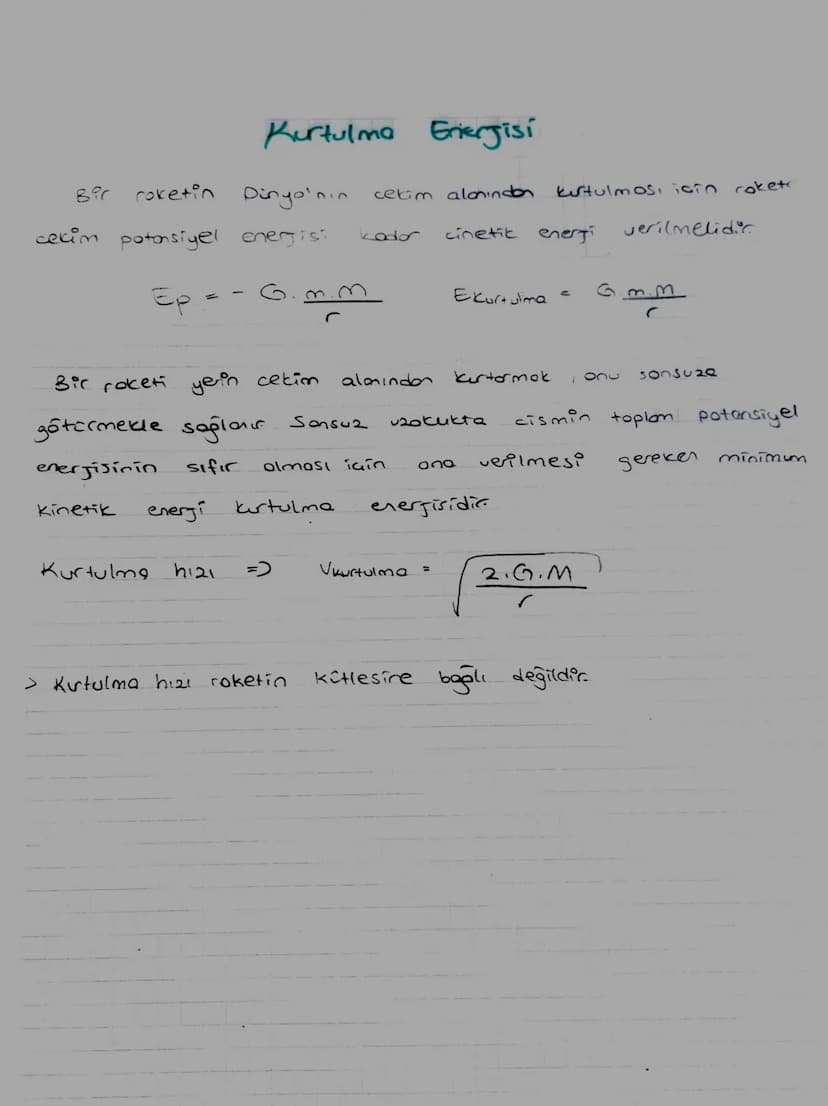 Kurtulma Energisi
Bir roketin Dünya'nın çekim alanından kurtulması için roket
çekim potansiyel energisi kadar cinetik energi verilmelidir.
Ep = - G. m.M / r    Ekurtulma = G m.M / r
Bir roketi yerin çekim alanından kurtarmak, onu sonsuza
götürmekle sağlanır Sonsuz uzaklıkta cismin toplam potansiyel
energisinin sıfır olması için ona verilmesi gereken minimum
kinetik energi kurtulma energisidir.
Kurtulma hızı => Vkurtulma = √(2.G.M / r)
> Kurtulma hızı roketin kütlesine bağlı değildir.